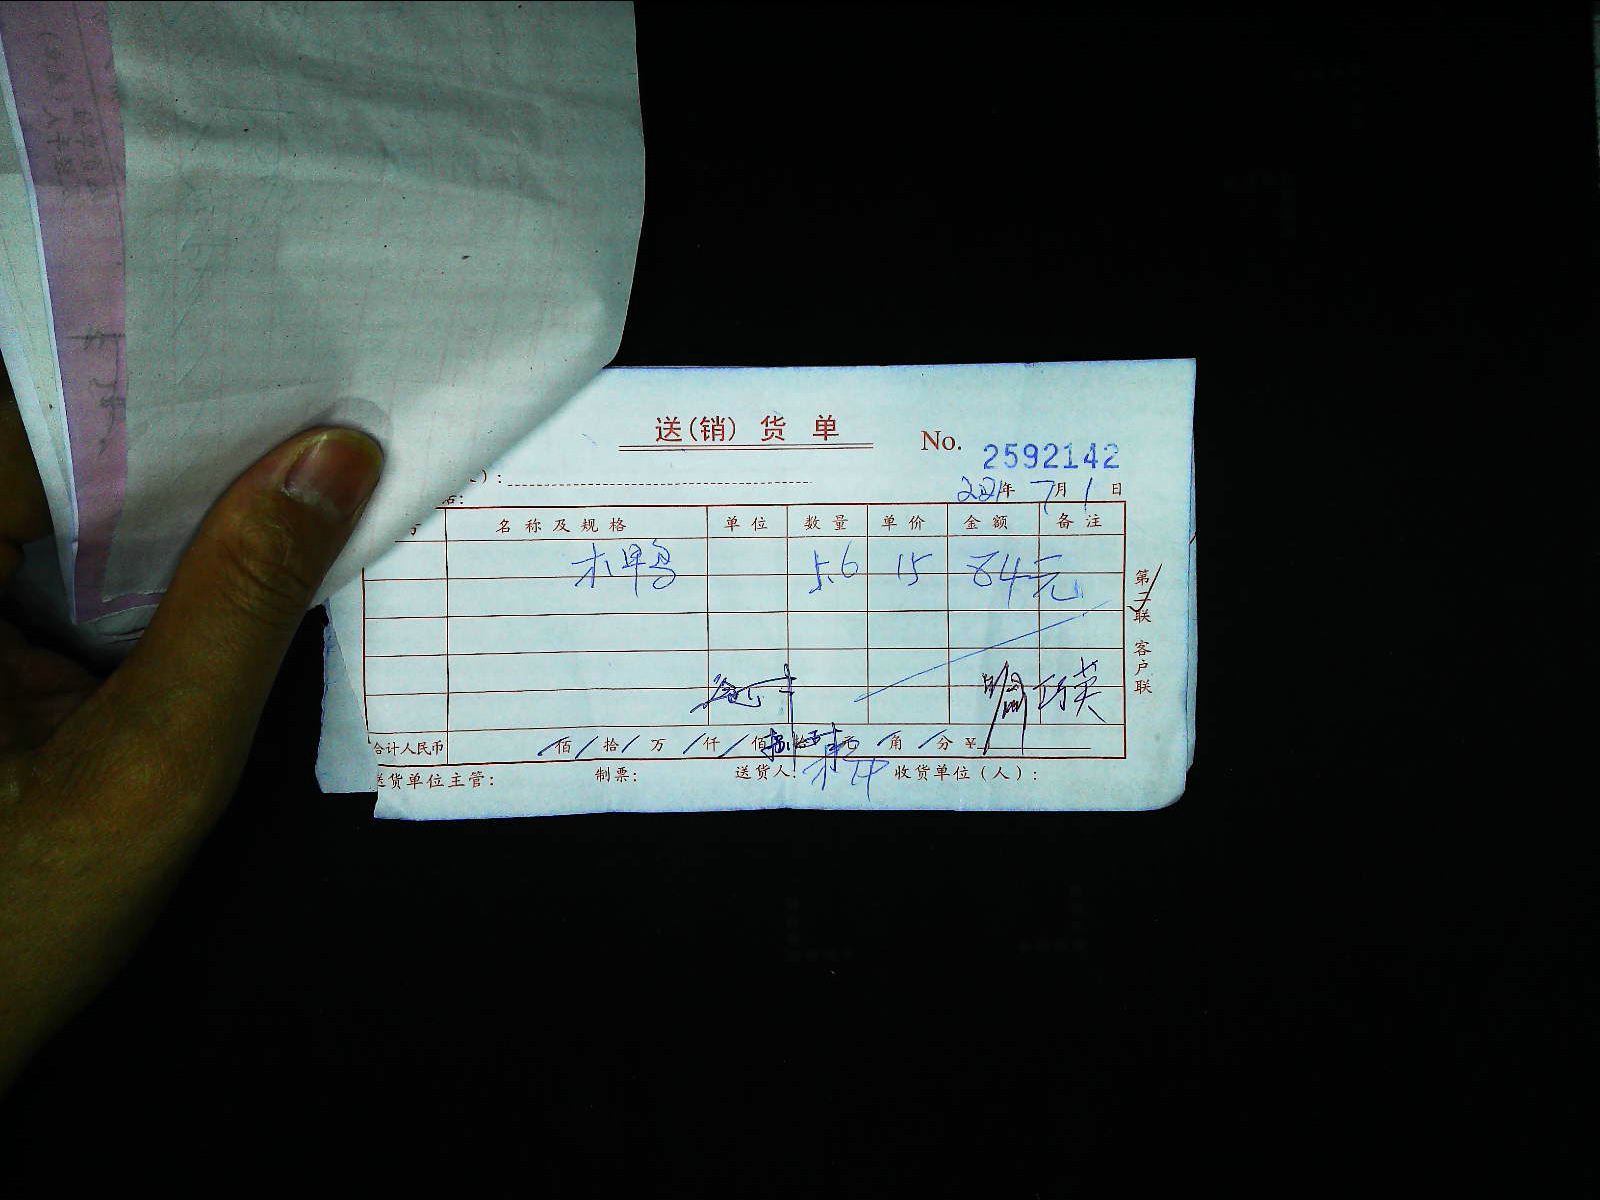 送(销)货单
No. 2592142
2021年 7月 1日
名称及规格 单位 数量 单价 金额 备注
5.6 15 84元
第二联 客户联
合计人民币 佰 拾 万 仟 佰 捌拾 元 角 分 ¥
送货单位主管： 制票： 送货人： 收货单位（人）：